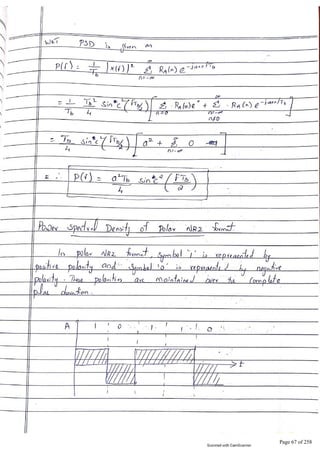 WKT PSD is given as
P(f) = 1/Tb |X(f)|² Σ n=-∞ ∞ RA(n) e^-j2πnfTb
= 1/Tb Tb²/4 sinc²(fTb/2) [ Σ n=0 RA(0)e° + Σ n=-∞ n≠0 ∞ RA(n) e^-j2πnfTb ]
= Tb/4 sinc²(fTb/2) [ a² + Σ n=-∞ ∞ 0 ]
∴ P(f) = a²Tb/4 sinc²(fTb/2)
Power Spectral Density of Polar NRZ format
In polar NRZ format, Symbol '1' is represented by
positive polarity and Symbol '0' is represented by negative
polarity. These polarities are maintained over the complete
pulse duration.
A 1 0 1 1 0
t
Scanned with CamScanner
Page 67 of 258